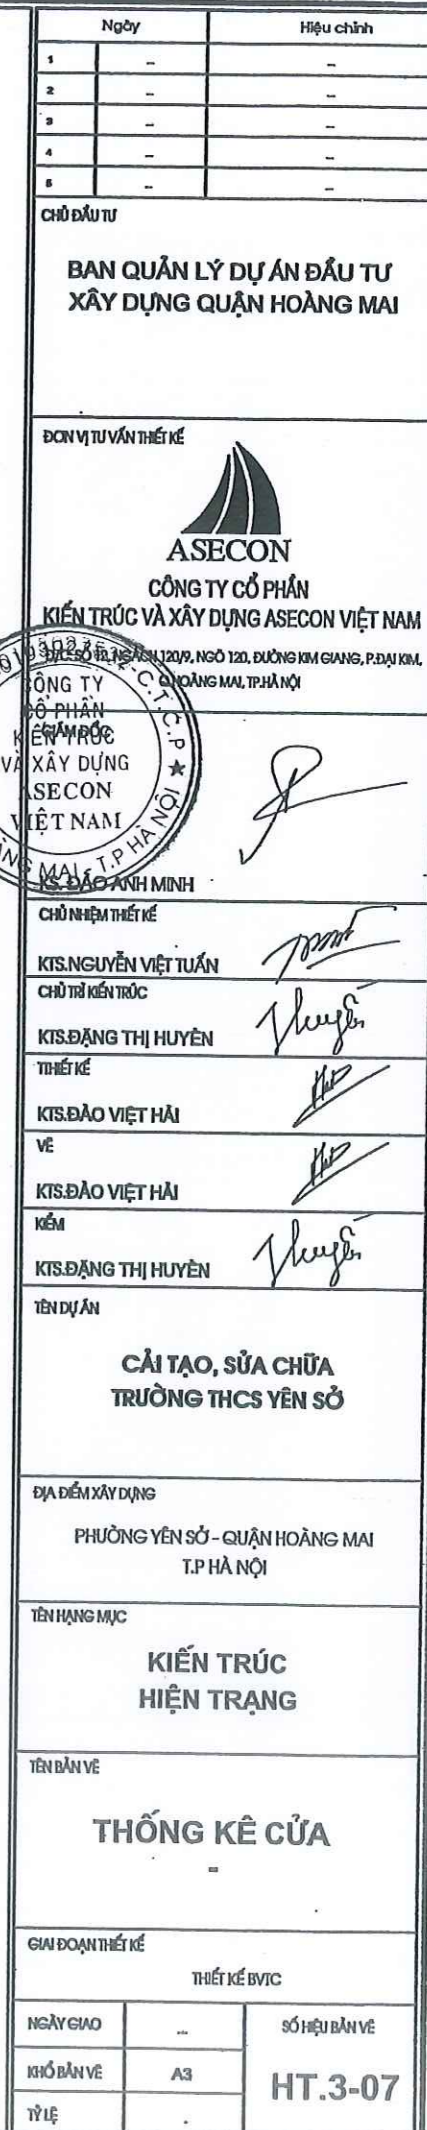 Ngày Hiệu chỉnh
1 -- --
2 -- --
3 -- --
4 -- --
5 -- --
CHỦ ĐẦU TƯ
BAN QUẢN LÝ DỰ ÁN ĐẦU TƯ
XÂY DỰNG QUẬN HOÀNG MAI
ĐƠN VỊ TƯ VẤN THIẾT KẾ
ASECON
CÔNG TY CỔ PHẦN
KIẾN TRÚC VÀ XÂY DỰNG ASECON VIỆT NAM
NGÁCH 120/9, NGÕ 120, ĐƯỜNG KIM GIANG, P.ĐẠI KIM,
Q.HOÀNG MAI, TP.HÀ NỘI
CÔNG TY
CỔ PHẦN
KIẾN TRÚC
VÀ XÂY DỰNG
ASECON
VIỆT NAM
C.T.C.P ★
MAI - T.P HÀ NỘI
GIÁM ĐỐC
KS. ĐÀO ANH MINH
CHỦ NHIỆM THIẾT KẾ
KTS.NGUYỄN VIỆT TUẤN
CHỦ TRÌ KIẾN TRÚC
KTS.ĐẶNG THỊ HUYÊN
Huyên
THIẾT KẾ
KTS.ĐÀO VIỆT HẢI
VẼ
KTS.ĐÀO VIỆT HẢI
KIỂM
KTS.ĐẶNG THỊ HUYÊN
Huyên
TÊN DỰ ÁN
CẢI TẠO, SỬA CHỮA
TRƯỜNG THCS YÊN SỞ
ĐỊA ĐIỂM XÂY DỰNG
PHƯỜNG YÊN SỞ - QUẬN HOÀNG MAI
T.P HÀ NỘI
TÊN HẠNG MỤC
KIẾN TRÚC
HIỆN TRẠNG
TÊN BẢN VẼ
THỐNG KÊ CỬA
-
GIAI ĐOẠN THIẾT KẾ
THIẾT KẾ BVTC
NGÀY GIAO ... SỐ HIỆU BẢN VẼ
KHỔ BẢN VẼ A3 HT.3-07
TỶ LỆ .